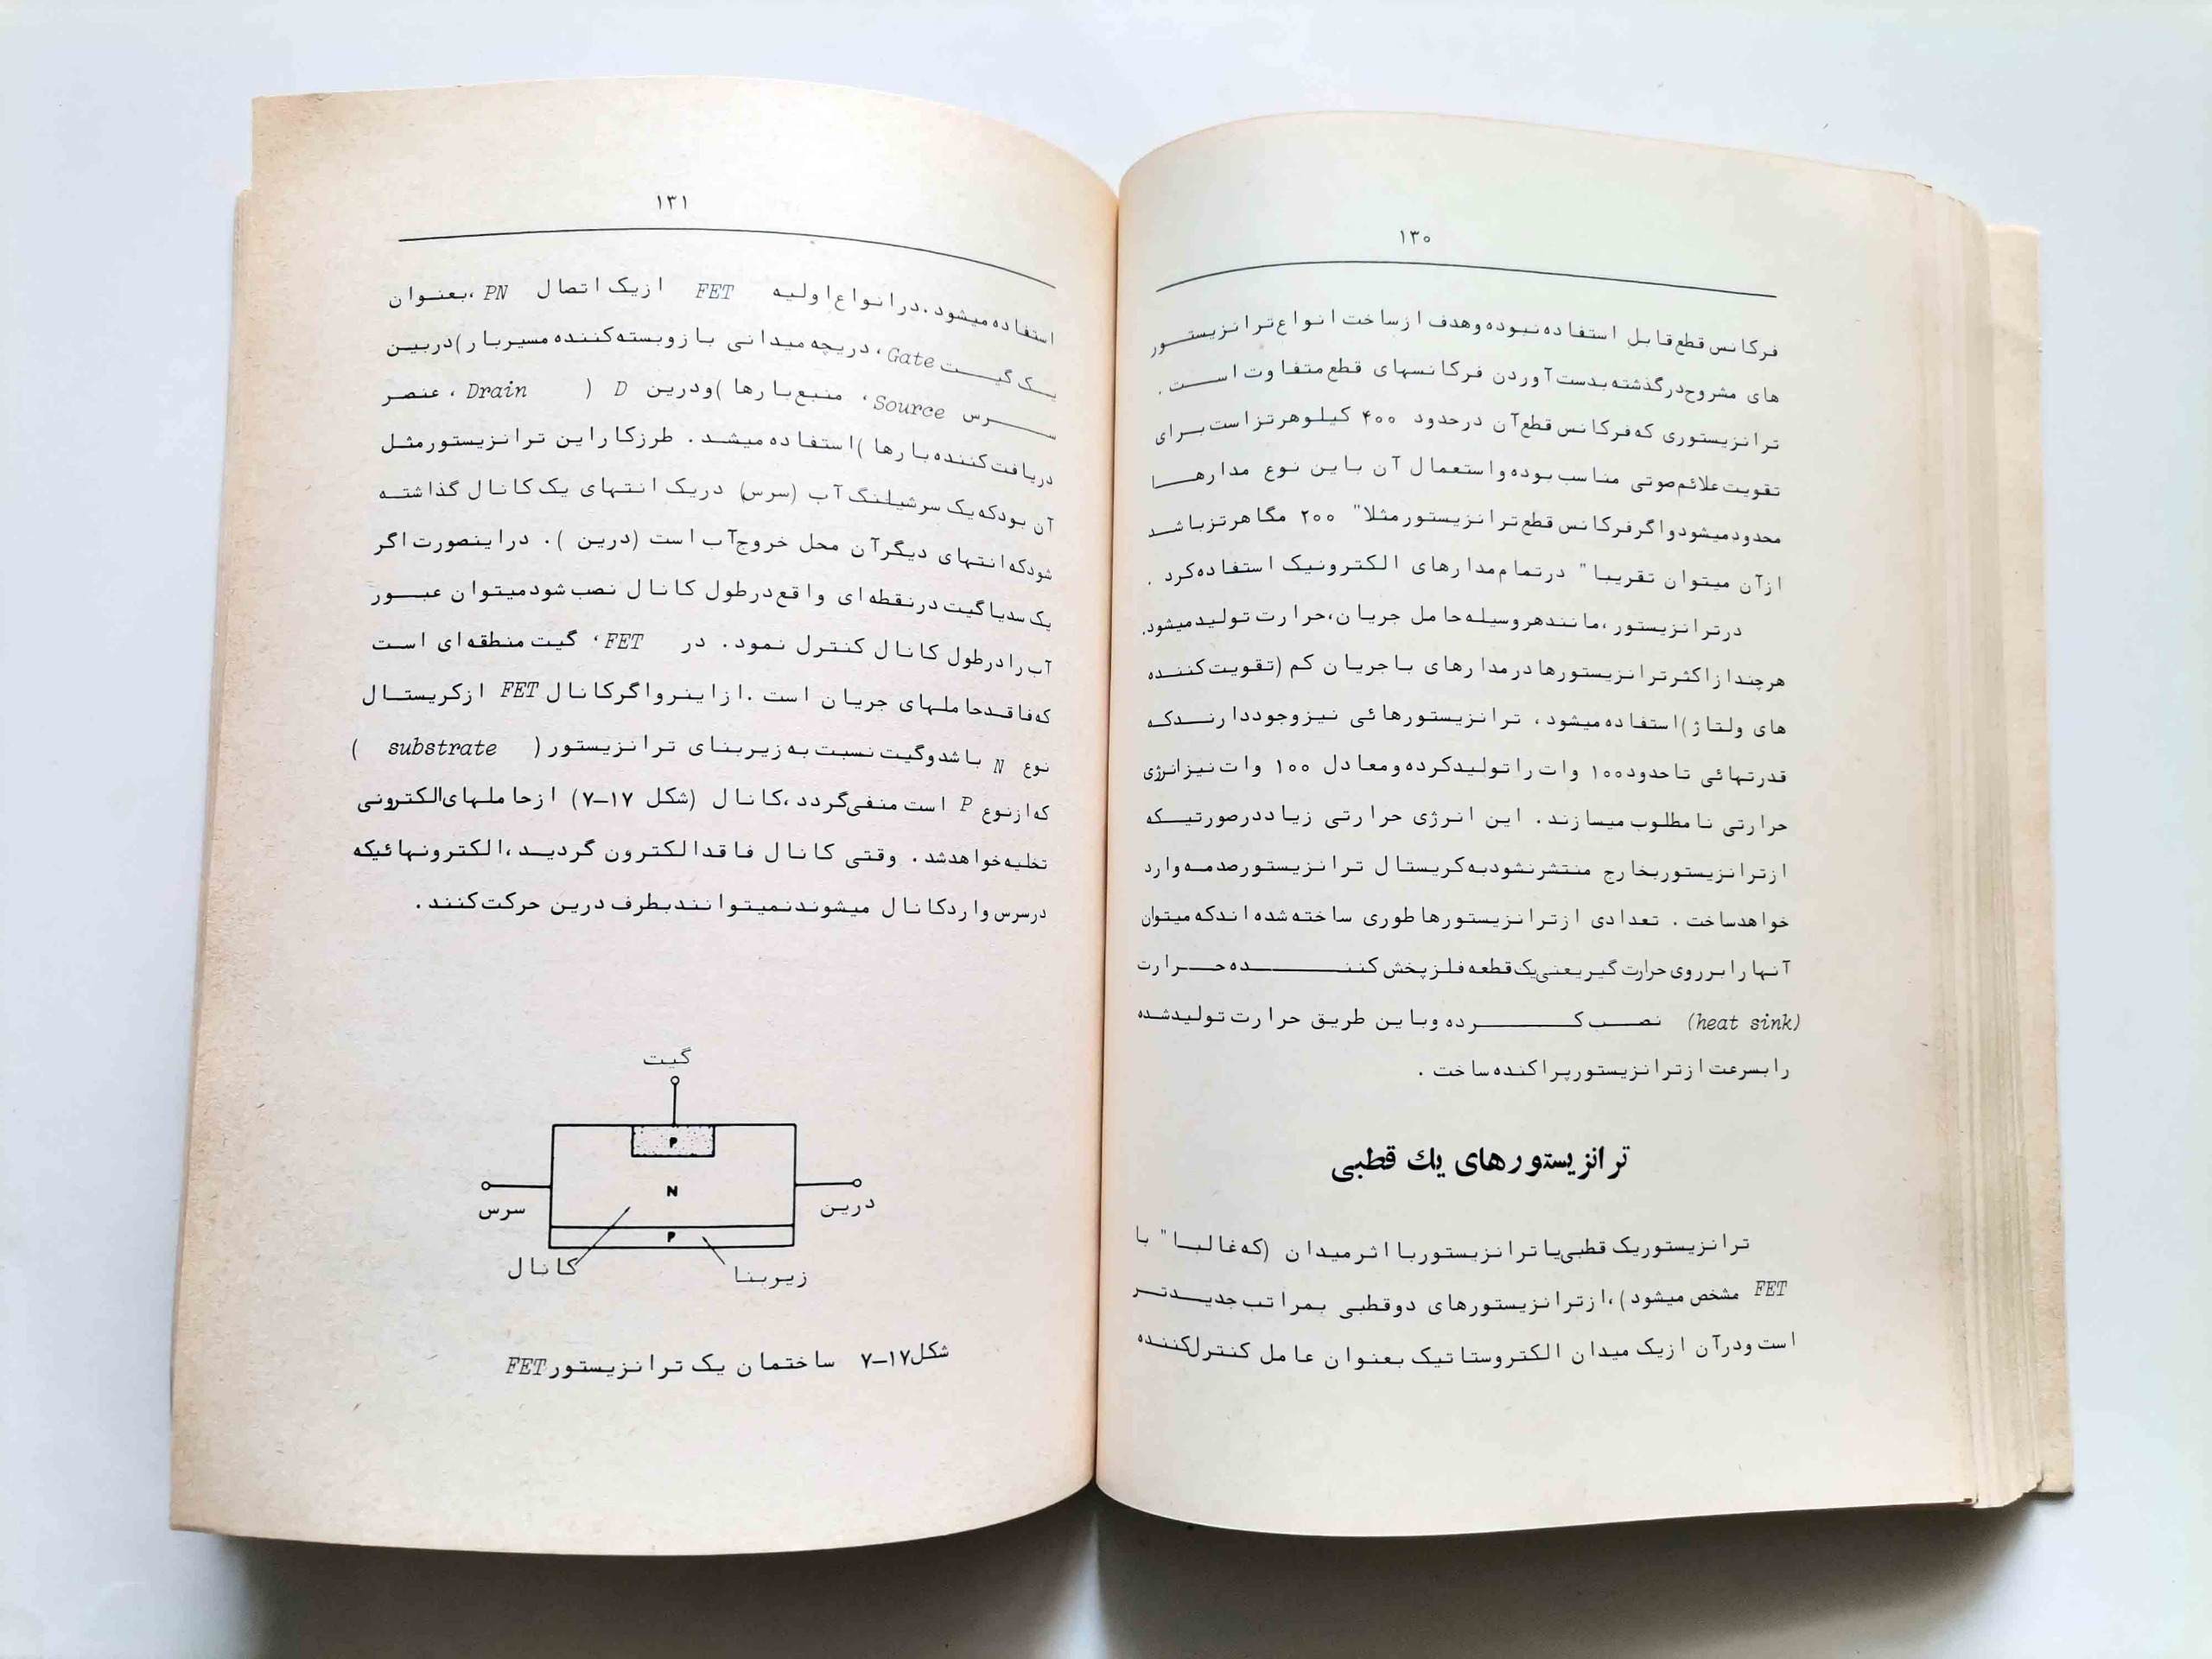 ۱۳۰
فرکانس قطع قابل استفاده نبوده و هدف از ساخت انواع ترانزیستور
های مشروح در گذشته بدست آوردن فرکانسهای قطع متفاوت است .
ترانزیستوری که فرکانس قطع آن در حدود ۴۰۰ کیلوهرتز است برای
تقویت علائم صوتی مناسب بوده و استعمال آن باین نوع مدارها
محدود میشود و اگر فرکانس قطع ترانزیستور مثلا" ۲۰۰ مگاهرتز باشد
از آن میتوان تقریبا" در تمام مدارهای الکترونیک استفاده کرد .
در ترانزیستور ، مانند هر وسیله حامل جریان ، حرارت تولید میشود.
هر چند از اکثر ترانزیستورها در مدارهای با جریان کم (تقویت کننده
های ولتاژ) استفاده میشود ، ترانزیستورهائی نیز وجود دارند که
قدرتهائی تا حدود ۱۰۰ وات را تولید کرده و معادل ۱۰۰ وات نیز انرژی
حرارتی نامطلوب میسازند . این انرژی حرارتی زیاد در صورتیکه
از ترانزیستور بخارج منتشر نشود به کریستال ترانزیستور صدمه وارد
خواهد ساخت . تعدادی از ترانزیستورها طوری ساخته شده اند که میتوان
آنها را بر روی حرارت گیر یعنی یک قطعه فلز پخش کننده حرارت
(heat sink) نصب کرده و باین طریق حرارت تولید شده
را بسرعت از ترانزیستور پراکنده ساخت .
ترانزیستورهای یك قطبی
ترانزیستور یک قطبی یا ترانزیستور با اثر میدان (که غالبا" با
FET مشخص میشود) ، از ترانزیستورهای دو قطبی بمراتب جدیدتر
است و در آن از یک میدان الکتروستاتیک بعنوان عامل کنترل کننده
۱۳۱
استفاده میشود . در انواع اولیه FET از یک اتصال PN ، بعنوان
یک گیت Gate ، دریچه میدانی باز و بسته کننده مسیر بار ) در بین
سرس Source ، منبع بارها ) و درین D ( Drain ، عنصر
دریافت کننده بارها ) استفاده میشد . طرز کار این ترانزیستور مثل
آن بود که یک سر شیلنگ آب (سرس) در یک انتهای یک کانال گذاشته
شود که انتهای دیگر آن محل خروج آب است (درین ) . در اینصورت اگر
یک سد یا گیت در نقطه ای واقع در طول کانال نصب شود میتوان عبور
آب را در طول کانال کنترل نمود . در FET ، گیت منطقه ای است
که فاقد حاملهای جریان است . از اینرو اگر کانال FET از کریستال
نوع N باشد و گیت نسبت به زیربنای ترانزیستور ( substrate )
که از نوع P است منفی گردد ، کانال (شکل ۱۷–۷) از حاملهای الکترونی
تخلیه خواهد شد . وقتی کانال فاقد الکترون گردید ، الکترونهائیکه
در سرس وارد کانال میشوند نمیتوانند بطرف درین حرکت کنند .
گیت
P
N
سرس
درین
P
کانال
زیربنا
شکل ۱۷–۷ ساختمان یک ترانزیستور FET